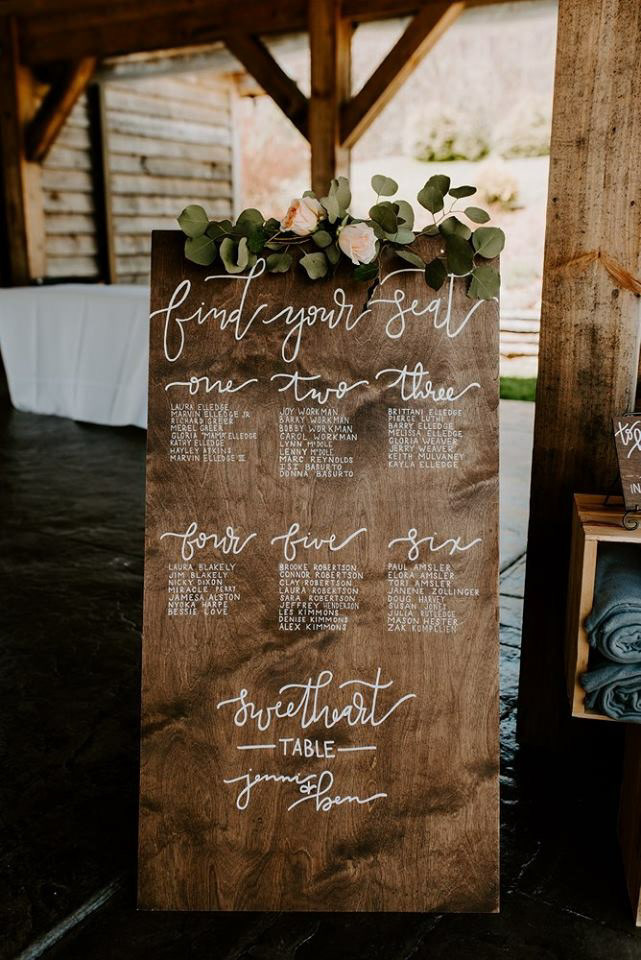 find your seat
one
LAURA ELLEDGE
MARVIN ELLEDGE JR.
RICHARD GREER
MEREL GREER
GLORIA "MAMA" ELLEDGE
KATHY ELLEDGE
HAYLEY ATKINS
MARVIN ELLEDGE III
two
JOY WORKMAN
BARRY WORKMAN
BOBBY WORKMAN
CAROL WORKMAN
LYNN McDOLE
LENNY McDOLE
MARC REYNOLDS
ISI BASURTO
DONNA BASURTO
three
BRITTANI ELLEDGE
PIERCE LUTHI
BARRY ELLEDGE
MELISSA ELLEDGE
GLORIA WEAVER
JERRY WEAVER
KEITH MULVANEY
KAYLA ELLEDGE
four
LAURA BLAKELY
JIM BLAKELY
NICKY DIXON
MIRACLE PERRY
JAMESA ALSTON
NYOKA HARPE
BESSIE LOVE
five
BROOKE ROBERTSON
CONNOR ROBERTSON
CLAY ROBERTSON
LAURA ROBERTSON
SARA ROBERTSON
JEFFREY HENDERSON
LES KIMMONS
DENISE KIMMONS
ALEX KIMMONS
six
PAUL AMSLER
ELORA AMSLER
TORI AMSLER
JANENE ZOLLINGER
DOUG HARVEY
SUSAN JONES
JULIA RUTLEDGE
MASON HESTER
ZAK KOMPELIEN
sweetheart
TABLE
jenni & ben